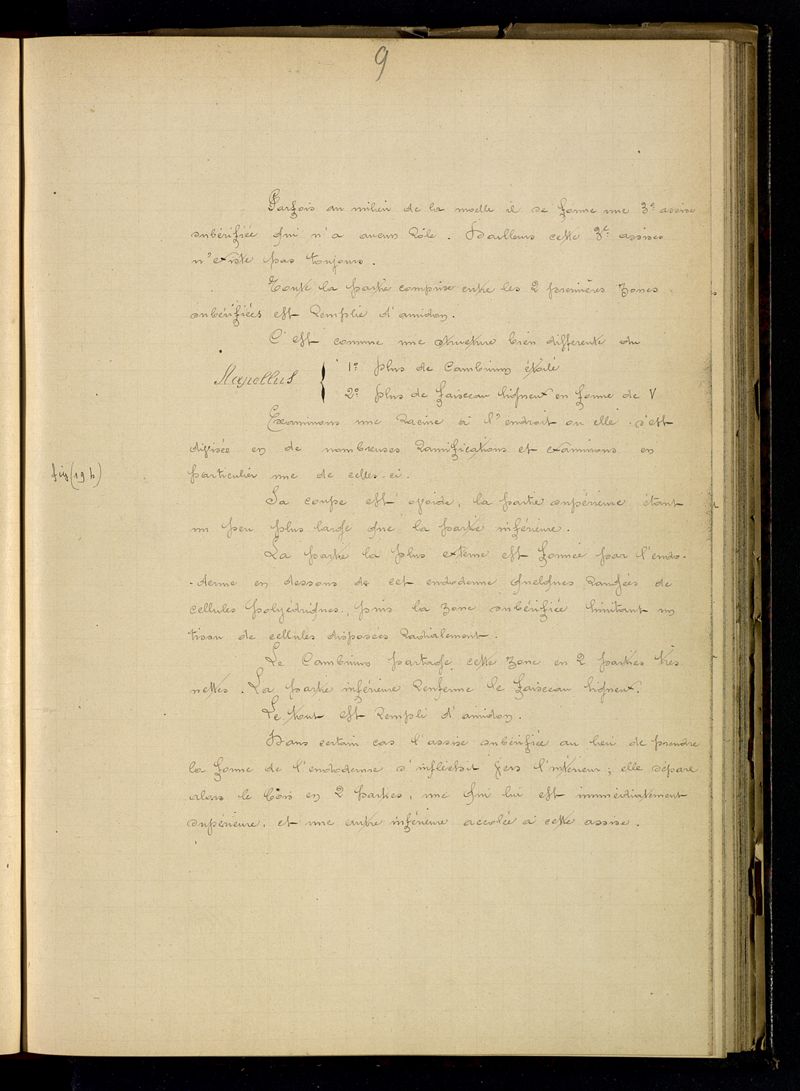 9
Parfois au milieu de la moelle il se forme une 3e assise
subérifiée qui n'a aucun rôle. D'ailleurs cette 3e assise
n'existe pas toujours.
Toute la partie comprise entre les 2 premières zones
subérifiées est remplie d'amidon.
C'est comme une structure bien différente du
Napellus { 1º plus de Cambium étoilé
2º plus de faisceau ligneux en forme de V
Examinons une racine à l'endroit ou elle s'est
divisée en de nombreuses ramifications et examinons en
particulier une de celles-ci.
fig (19 b)
La coupe est ovoïde, la partie supérieure étant
un peu plus large que la partie inférieure.
La partie la plus externe est formée par l'endo-
-derme en dessous de cet endoderme quelques rangées de
cellules polyédriques, puis la zone subérifiée limitant un
tissu de cellules disposées radialement.
Le Cambium partage cette zone en 2 parties très
nettes. La partie inférieure renferme le faisceau ligneux.
Le tout est rempli d'amidon.
Dans certain cas l'assise subérifiée au lieu de prendre
la forme de l'endoderme s'infléchit vers l'intérieur; elle sépare
alors le bois en 2 parties, une qui lui est immédiatement
supérieure, et une autre inférieure accolée à cette assise.